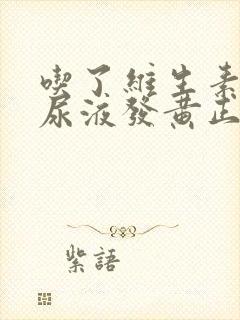 喫了維生素
尿液發黄正
紫語